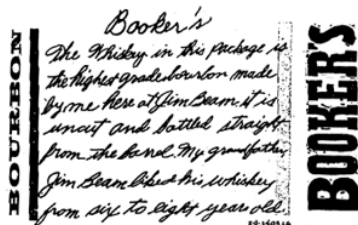 Booker's
The Whiskey in this package is
the highest grade bourbon made
by me here at Jim Beam it is
uncut and bottled straight
from the barrel. My grandfather,
Jim Beam liked his whiskey
from six to eight years old.
BOURBON
BOOKER'S